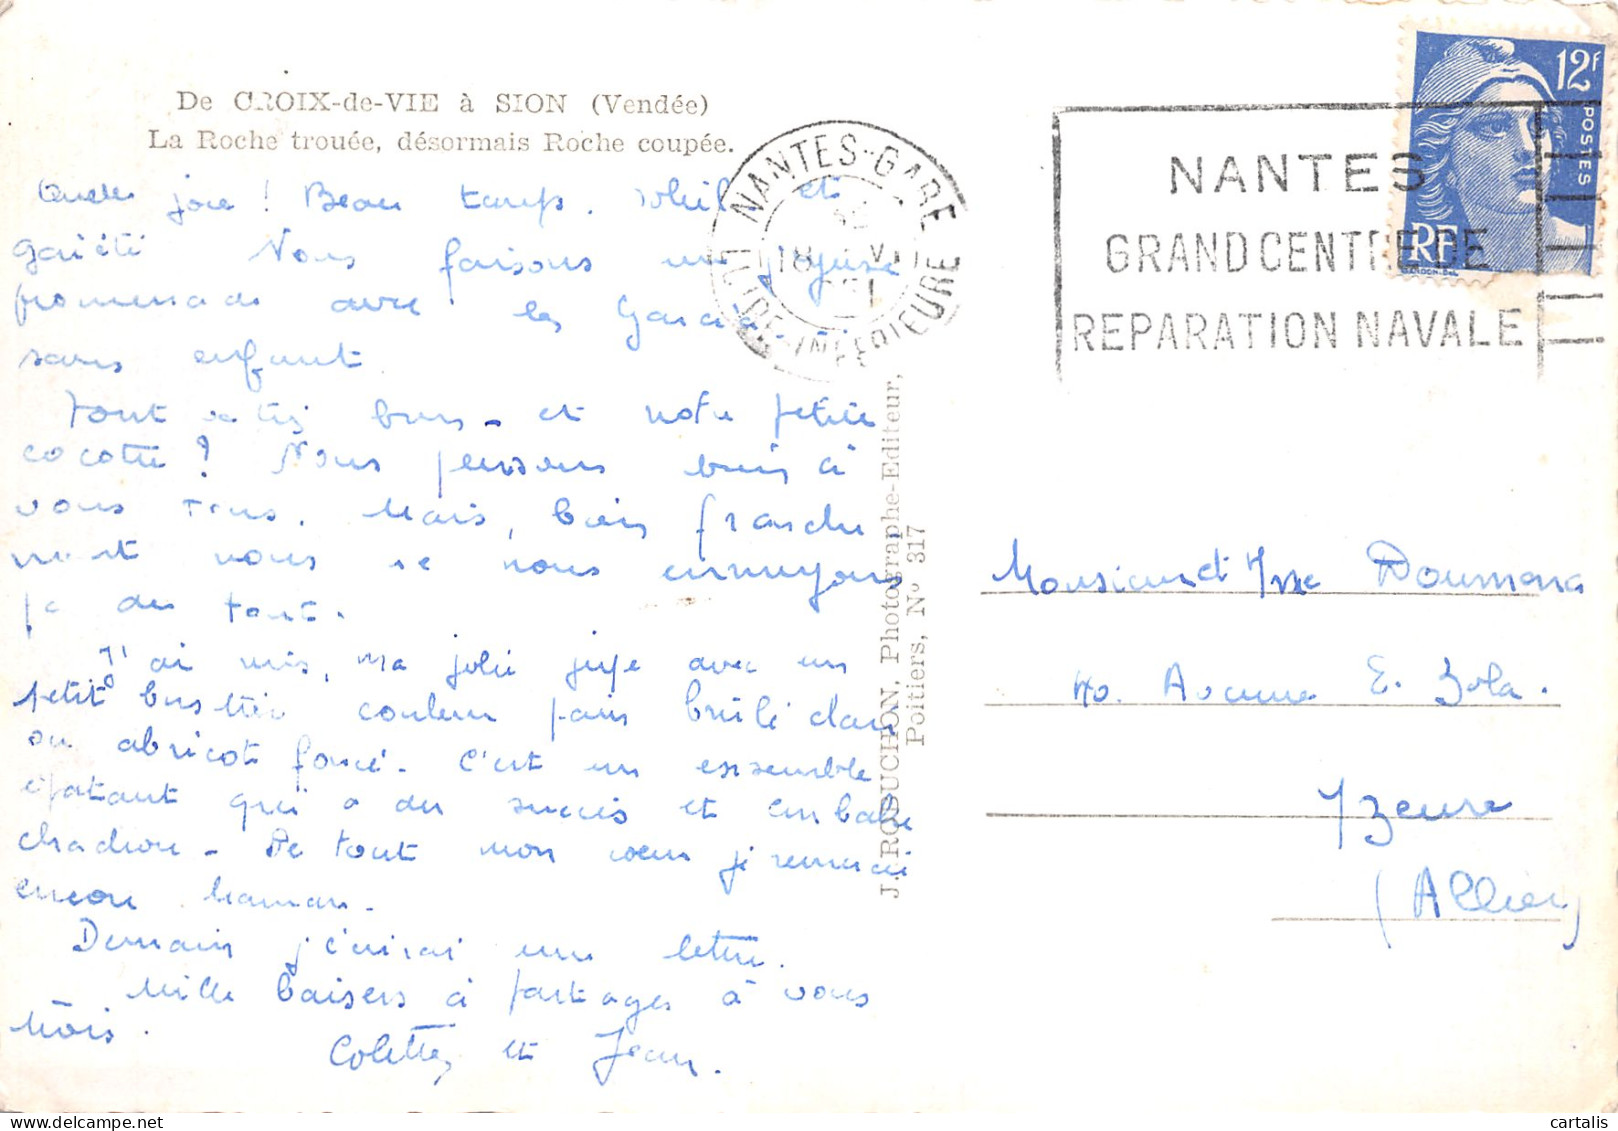 De CROIX-de-VIE à SION (Vendée)
La Roche trouée, désormais Roche coupée.
Quelle joie ! Beau temps. Soleil et
gaiété Nous faisons une joyeuse
promenade avec les Garcia
sans enfant.
Tout va très bien - et notre petite
cocotte ? Nous pensons bien à
vous tous. Mais, bien franche
ment nous ne nous ennuyons
pas du tout.
J'ai mis, ma jolie jupe avec un
petit bustier couleur pain brûlé dans
ou abricot foncé. C'est un ensemble
épatant qui a du succès et emballe
chadrou - De tout mon coeur je remercie
encore Maman.
Demain j'écrirai une lettre.
Mille baisers à partager à vous
trois.
Colette et Jean.
J. ROBUCHON, Photographe-Editeur,
Poitiers, No 317
NANTES-GARE
LOIRE-INFERIEURE
18
NANTES
GRAND CENTRE DE
REPARATION NAVALE
12F
POSTES
RF
Monsieur et Mme
40. Avenue E. Zola.
Yzeure
(Allier)
cartalis